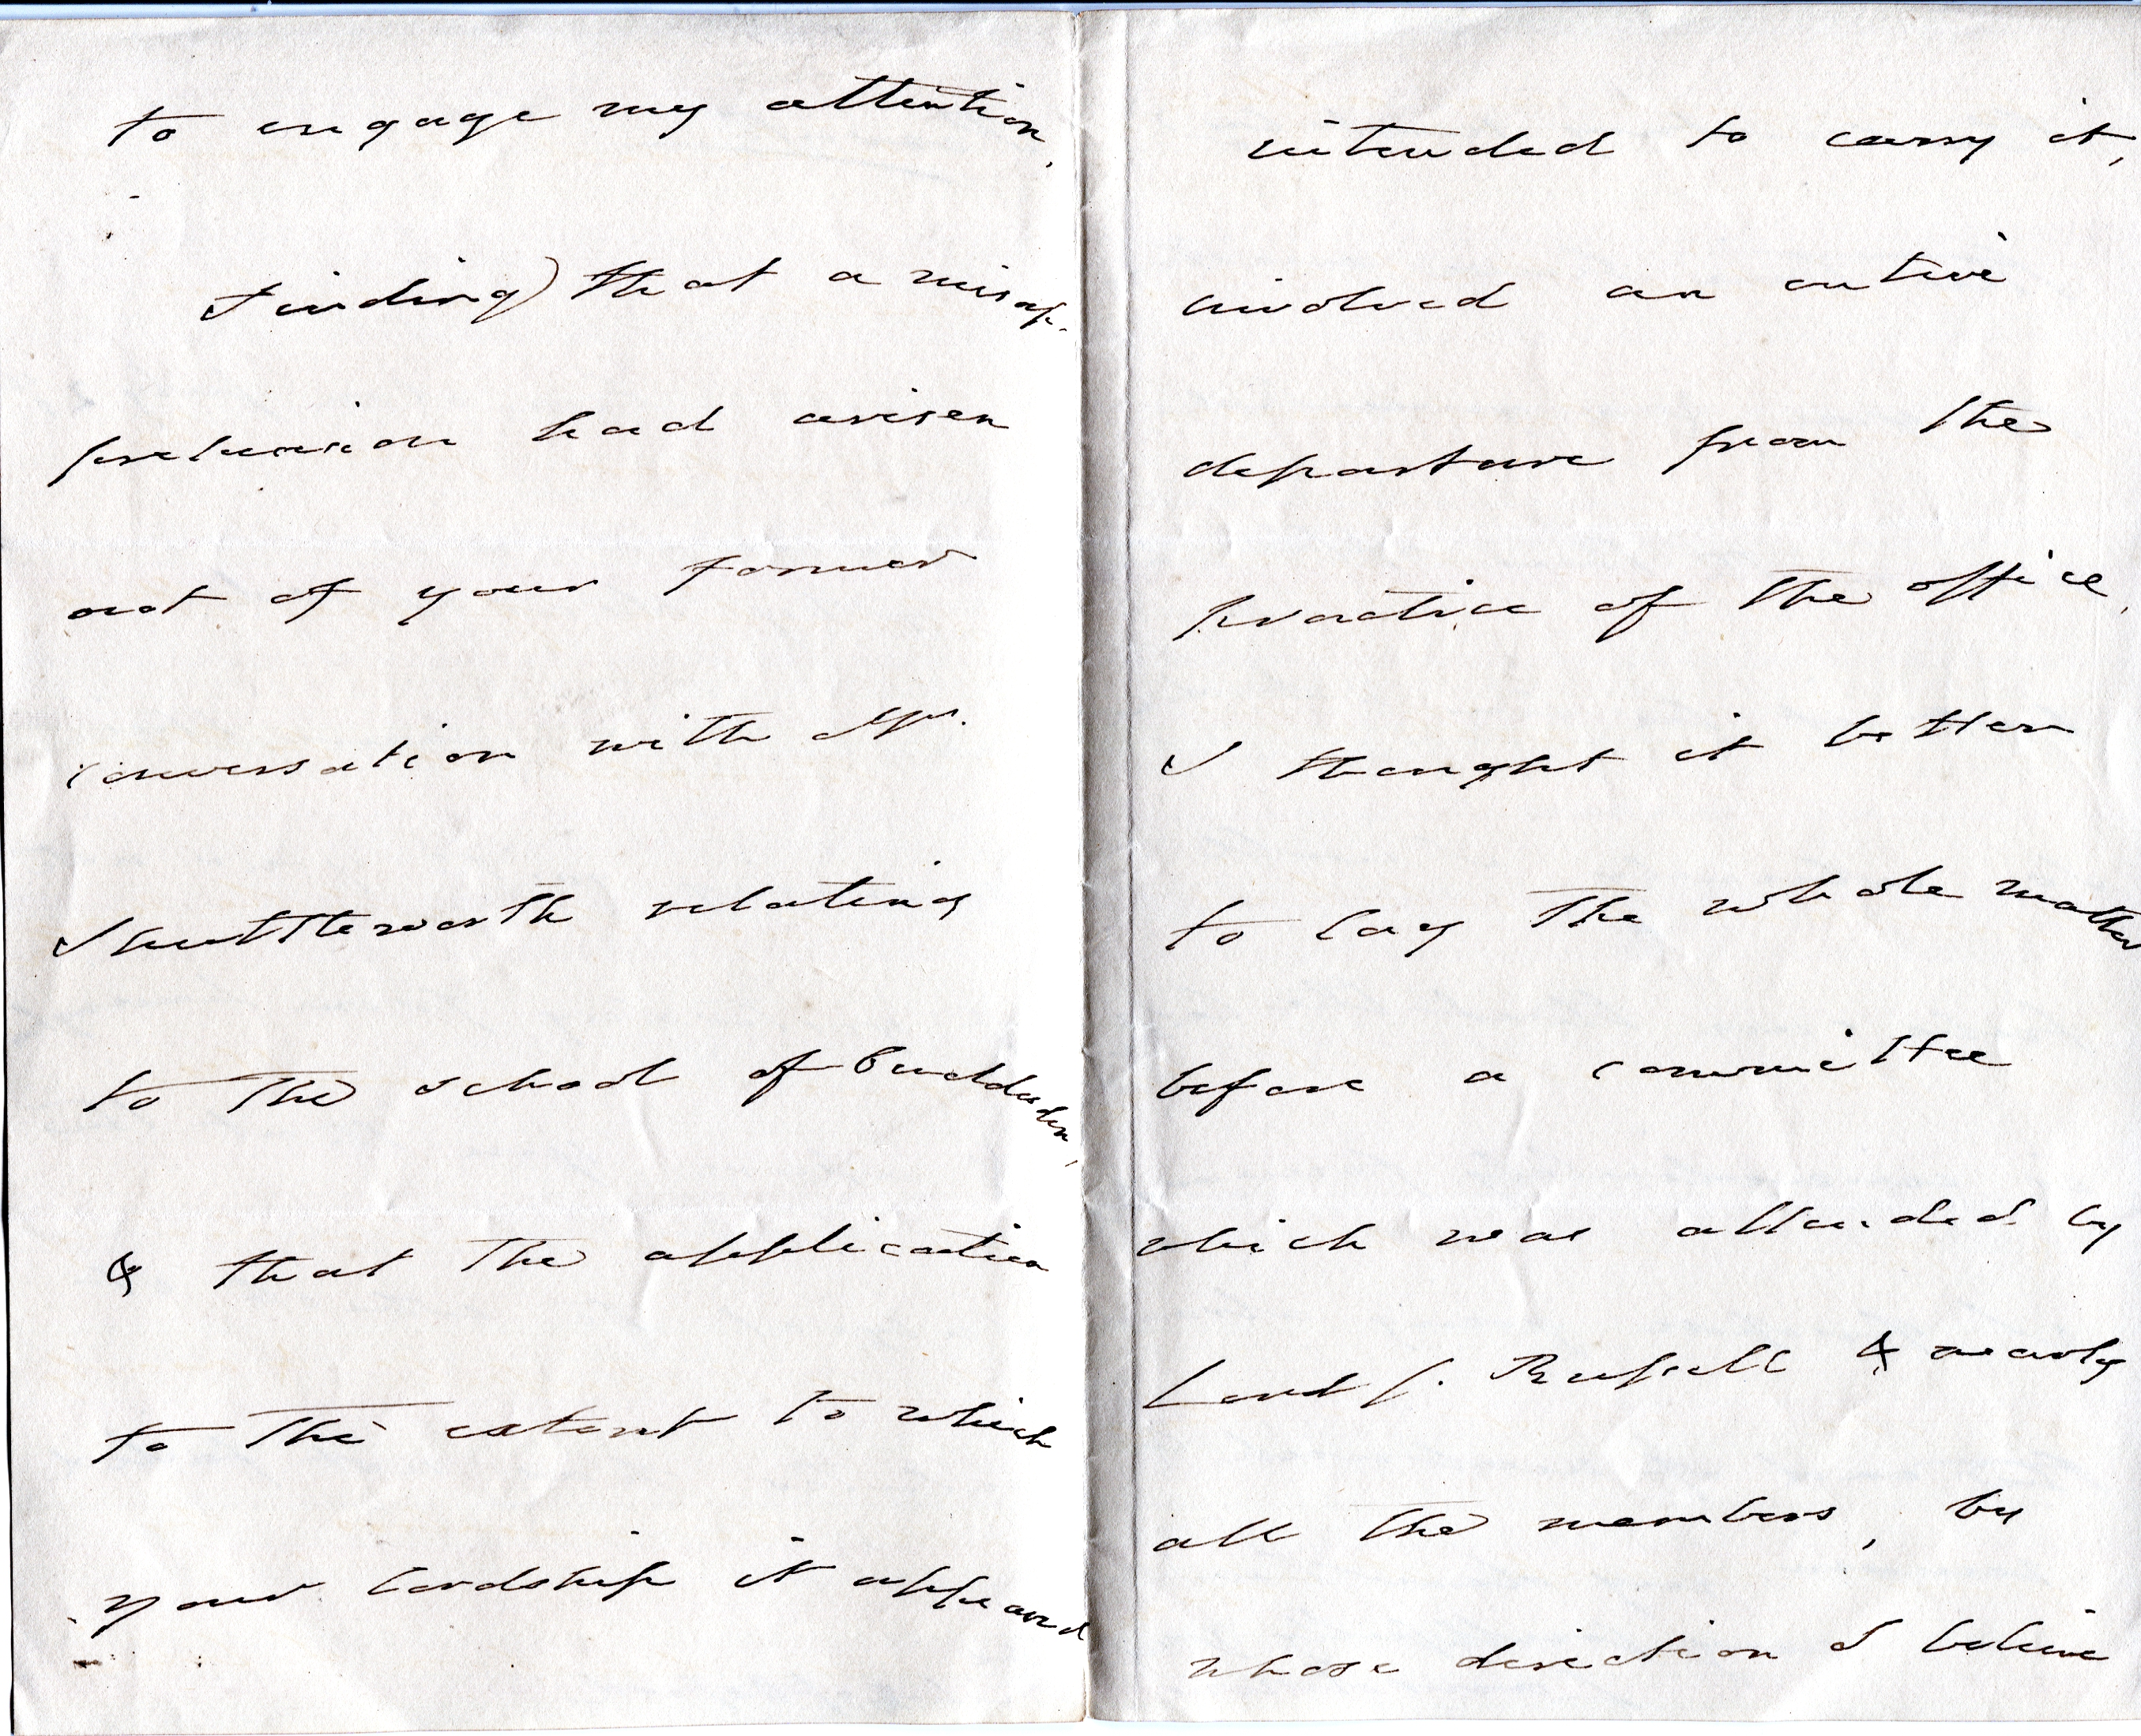 to engage my attention,
Finding) that a misap-
prehension had arisen
out of your former
conversation with Mr.
Shuttleworth relating
to the school of
& that the application
to the extent to which
your lordship it appeared
intended to carry it,
involved an entire
departure from the
practice of the office,
I thought it better
to lay the whole matter
before a committee
which was attended by
Lord J. Russell & nearly
all the members, by
whose direction I believe